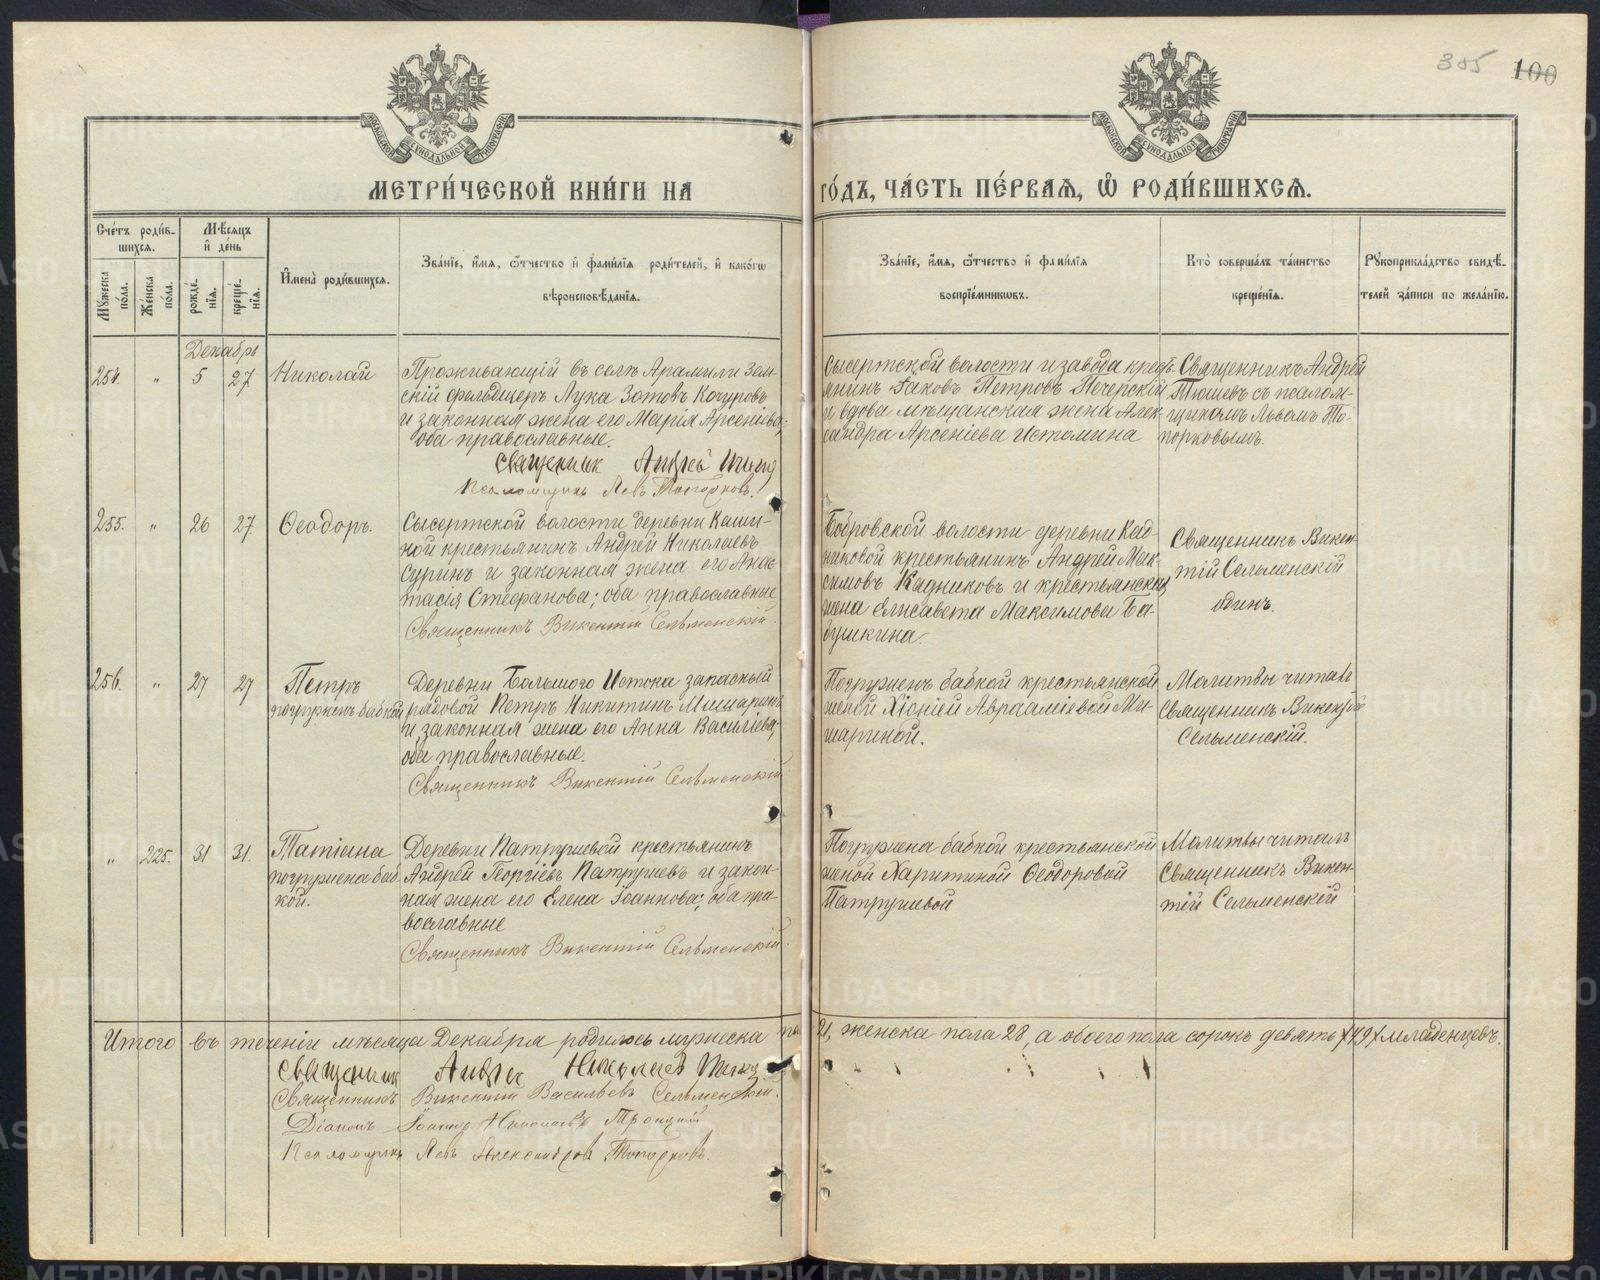 305 100
МЕТРИ́ЧЕСКОЙ КНИ́ГИ НА
ГО́ДЪ, ЧА́СТЬ ПЕ́РВАЯ, Ѡ҆ РОДИ́ВШИХСЯ.
Сче́тъ роди́в-
шихся.
Мѣ́сяцъ
и҆ де́нь
Мꙋ́жеска по́ла.
Же́нска по́ла.
рожде́-
нїя.
креще́-
нїя.
И҆мена̀ роди́вшихся.
Зва́нїе, и҆́мя, ѻ҆́тчество и҆ фами́лїя роди́телей, и҆ како́гѡ
вѣроисповѣ́данїя.
Зва́нїе, и҆́мя, ѻ҆́тчество и҆ фами́лїя
воспрїе́мникѡвъ.
Кто̀ соверша́лъ та́инство
креще́нїя.
Рꙋкоприкла́дство свидѣ́-
телей за́писи по жела́нїю.
Декабрь
254. " 5 27 Николай
Проживающій въ селѣ Арамили Зем-
скій фельдшеръ Лука Зотовъ Кочуровъ
и законная жена его Марія Арсеніева;
оба православные.
Священник Андрей
Псаломщикъ Левъ Топорковъ.
Сысертской волости и завода крест-
янинъ Іаковъ Петровъ Печерскій
и вдова мѣщанская жена Алек-
сандра Арсеніева Истомина
Священникъ Андрей
съ псалом-
щикомъ Львомъ То-
порковымъ.
255. " 26 27 Ѳеодоръ.
Сысертской волости деревни Каши-
ной крестьянинъ Андрей Николаевъ
Суринъ и законная жена его Анас-
тасія Стефанова; оба православные
Священникъ Викентій Сельменскій.
Бобровской волости деревни Кад-
никовой крестьянинъ Андрей Мак-
симовъ Кадниковъ и крестьянская
жена Елисавета Максимова Ба-
бушкина.
Священникъ Викен-
тій Сельменскій
одинъ.
256. " 27 27 Петръ
погруженъ бабкой
Деревни Большого Истока запасный
рядовой Петръ Никитинъ Мишаринъ
и законная жена его Анна Васильева,
оба православные.
Священникъ Викентій Сельменскій
Погруженъ бабкой крестьянской
женой Хіоніей Авраамиевой Ми-
шариной.
Молитвы читалъ
Священникъ Викентій
Сельменскій.
" 225. 31 31. Татіана
погружена баб-
кой.
Деревни Патрушевой крестьянинъ
Андрей Георгіевъ Патрушевъ и закон-
ная жена его Елена Іоаннова; оба пра-
вославные
Священникъ Викентій Сельменскій.
Погружена бабкой крестьянской
женой Харитиной Ѳеодоровой
Патрушевой
Молитвы читалъ
Священникъ Викен-
тій Сельменскій
Итого въ теченіи мѣсяца Декабря родилось мужеска по 21, женска пола 28, а обоего пола сорокъ девять /49/ младенцевъ.
Священник Андрей Николаев
Священникъ Викентій Васильевъ Сельменскій.
Діаконъ Іоаннъ Николаевъ Троицкій
Псаломщикъ Левъ Александровъ Топорковъ.
METRIKI.GASO-URAL.RU